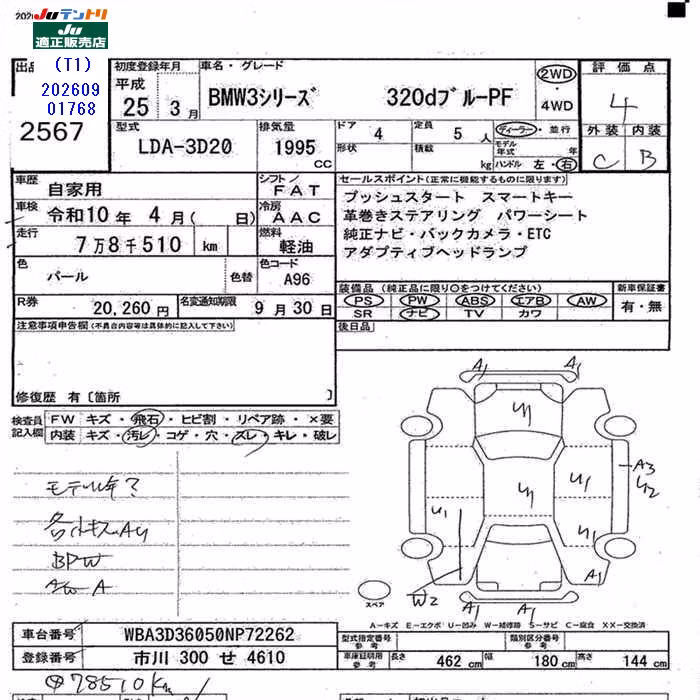 202
JUテントリ
JU
適正販売店
出品
(T1)
202609
01768
2567
初度登録年月
平成
25 年 3 月
車名・グレード
BMW3シリーズ 320dブルーPF
2WD
・
4WD
評価点
4
外装 内装
C B
型式
LDA-3D20
排気量
1995
CC
ドア 4
定員 5 人
ディーラー・並行
形状
積載 kg
モデル年式 年
ハンドル 左・右
車歴
自家用
シフト
FAT
車検
令和10 年 4 月 ( 日)
冷房
AAC
走行
7万8千510 km
燃料
軽油
色
パール
色替
色コード
A96
R券
20,260円
名変通知期限
9 月 30 日
セールスポイント(正常に機能するものに限ります)
プッシュスタート スマートキー
革巻きステアリング パワーシート
純正ナビ・バックカメラ・ETC
アダプティブヘッドランプ
装備品 (純正品に限り○をつけてください)
PS PW ABS エアB AW
SR ナビ TV カワ
新車保証書
有・無
後日品
注意事項申告欄(不具合内容等は具体的に記入して下さい)
修復歴 有〔箇所 〕
検査員
記入欄
FW キズ・飛石・ヒビ割・リペア跡・×要
内装 キズ・汚レ・コゲ・穴・スレ・キレ・破レ
モデル年?
BPW
AW A
A1 A1
U1
U1
U1
U1
U1
A3
U2
A1
W2
A1 A1
スペア
A－キズ E－エクボ U－凹み W－補修跡 S－サビ C－腐食 XX－交換済
車台番号
WBA3D36050NP72262
登録番号
市川 300 せ 4610
型式指定番号
参考
類別区分番号
参考
車庫証明用
参考
長さ 462 cm 幅 180 cm 高さ 144 cm
78510Km